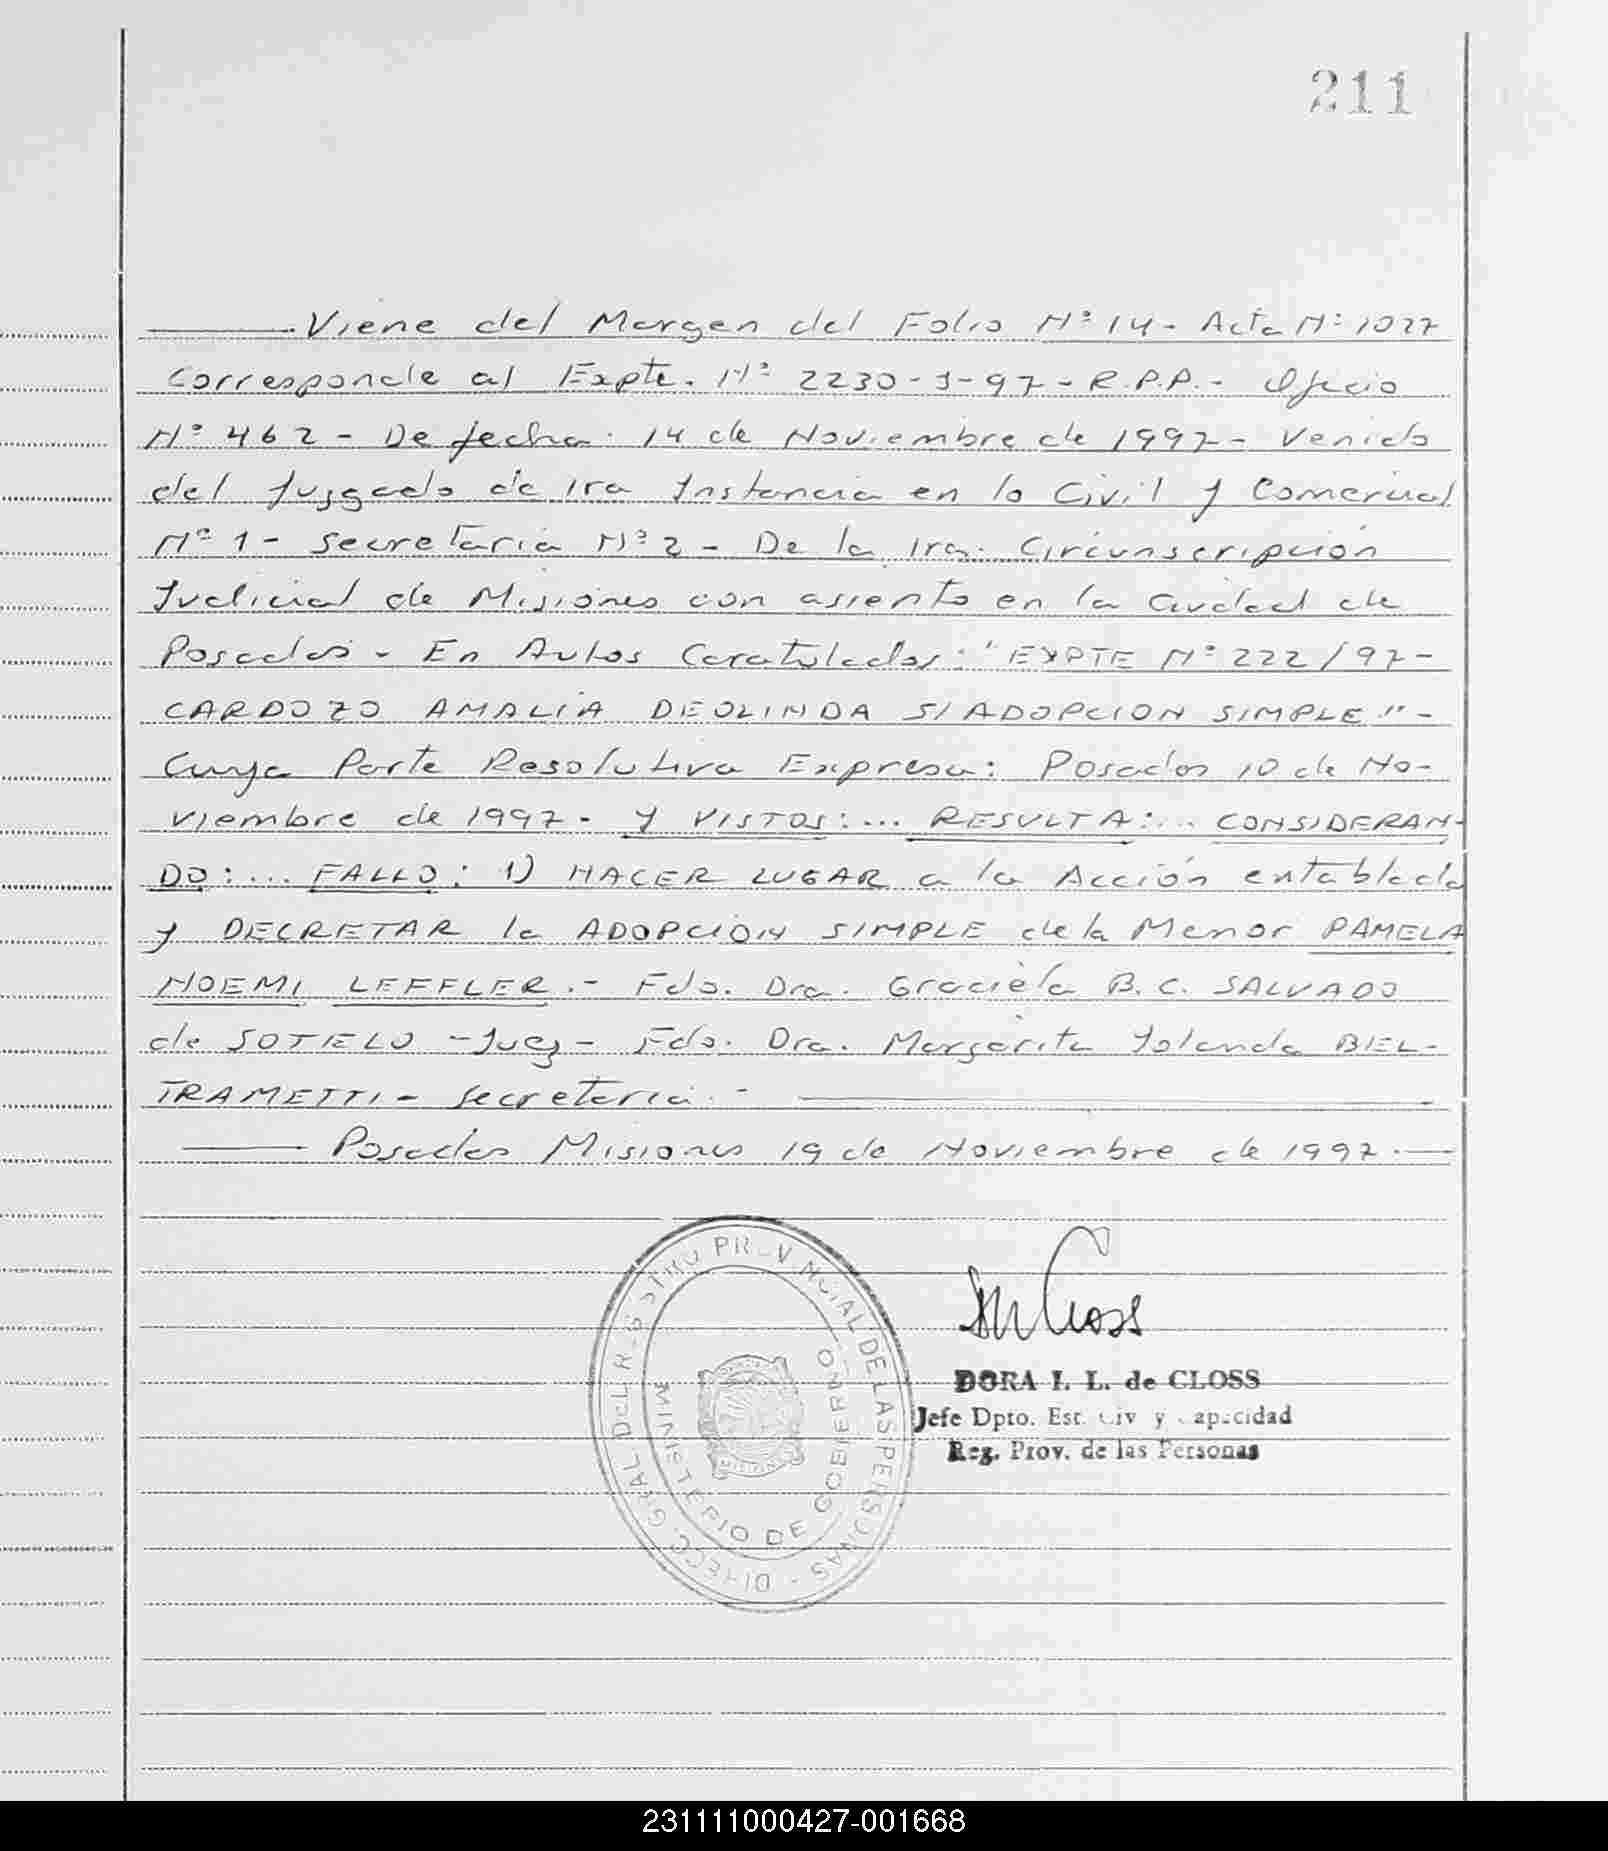 211
Viene del Margen del Folio Nº 14 - Acta Nº 1027
Corresponde al Expte. Nº 2230-J-97 - R.P.P.- Oficio
Nº 462 - De fecha 14 de Noviembre de 1997 - Venido
del Juzgado de 1ra Instancia en lo Civil y Comercial
Nº 1 - Secretaría Nº 2 - De la 1ra. Circunscripción
Judicial de Misiones con asiento en la Ciudad de
Posadas - En Autos Caratulados: "EXPTE Nº 222/97-
CARDOZO AMALIA DEOLINDA S/ADOPCION SIMPLE" -
Cuya Parte Resolutiva Expresa: Posadas 10 de No-
viembre de 1997 - Y VISTOS:... RESULTA:... CONSIDERAN-
DO:... FALLO: 1) HACER LUGAR a la Acción entablada
y DECRETAR la ADOPCIÓN SIMPLE de la Menor PAMELA
NOEMI LEFFLER.- Fdo. Dra. Graciela B.C. SALVADO
de SOTELO - Juez - Fdo. Dra. Margarita Yolanda BEL-
TRAMETTI - Secretaria.-
Posadas Misiones 19 de Noviembre de 1997.
DIRECC. GRAL DEL REGISTRO PROVINCIAL DE LAS PERSONAS -
MINISTERIO DE GOBIERNO
MISIONES
DM Closs
DORA I. L. de CLOSS
Jefe Dpto. Est. Civ y Capacidad
Reg. Prov. de las Personas
231111000427-001668